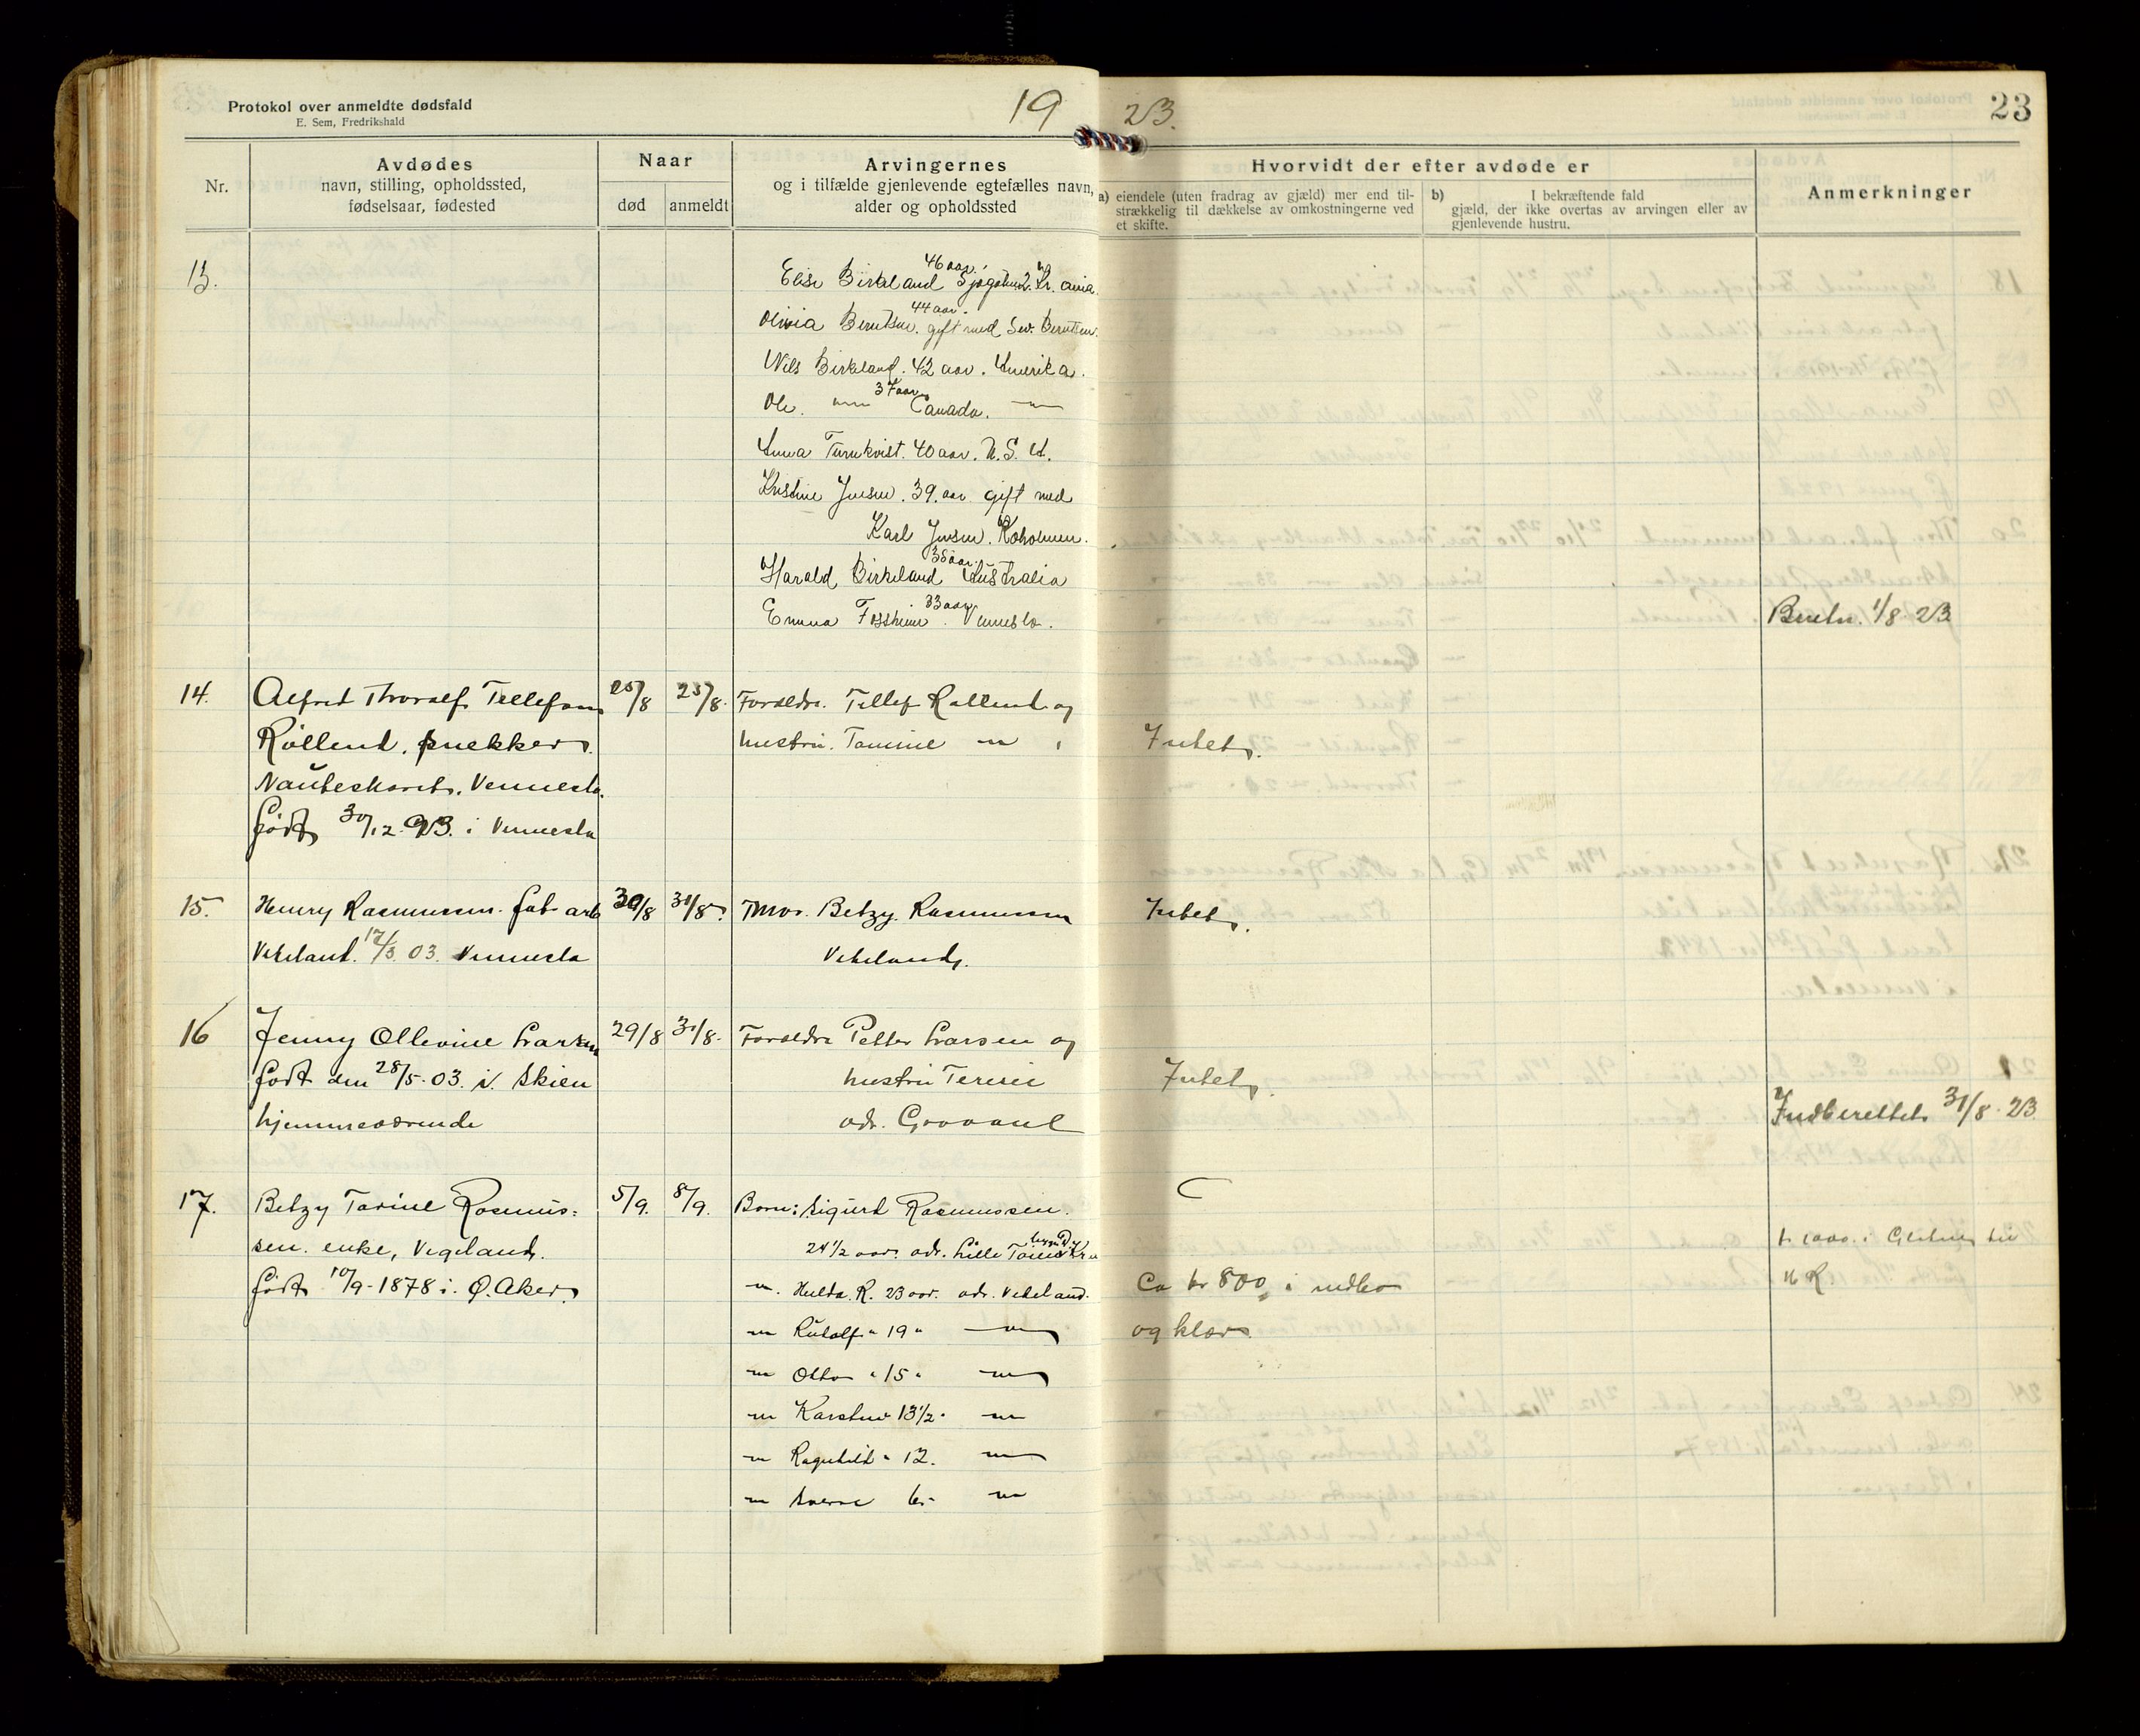 Protokol over anmeldte dødsfald
E. Sem, Fredrikshald
19 23.
23
Nr.
Avdødes
navn, stilling, opholdssted,
fødselsaar, fødested
Naar
død anmeldt
Arvingernes
og i tilfælde gjenlevende egtefælles navn,
alder og opholdssted
Hvorvidt der efter avdøde er
a) eiendele (uten fradrag av gjæld) mer end til-
strækkelig til dækkelse av omkostningerne ved
et skifte.
b) I bekræftende fald
gjæld, der ikke overtas av arvingen eller av
gjenlevende hustru.
Anmerkninger
13.
46 aar.
Elise Birkeland
44 aar.
Olivia Berntsen. gift med Sev. Berntsen.
Nils Birkeland. 42 aar. Amerika.
37 aar
Ole. —"— Canada. —"—
Anna Turnkvist. 40 aar. U.S.A.
Kristine Jensen. 39. aar gift med
Karl Jensen.
35 aar.
Harald Birkeland Australia
33 aar
Emma Vennesla.
1/8 23
14. Alfred Thoralf Tellefsen 25/8 25/8. Foreldre. Tellef Rollend og
Røllend, snekker. hustru. Tomine —"— Intet.
Vennesla.
født 30/12. 93. i Vennesla
15. Henry Rasmussen. fab. arb 30/8 31/8. Mor. Betzy Rasmussen Intet.
Vekeland. 17/3. 03. Vennesla Vekeland.
16 Jenny Ollevine Larsen 29/8 31/8. Foreldre Petter Larsen og
født den 28/5. 03. i. Skien hustru Teresie Intet.
hjemmeværende adr. Gravane
Indberettet 31/8. 23
17. Betzy Tarine Rasmus= 5/9. 8/9. Barn: Sigurd Rasmussen.
sen. enke, Vigeland. 24 1/2 aar. adr. Lille
født 10/9-1878 i. Ø. Aker. —"— Hulda. R. 23 aar. adr. Vekeland. Ca kr 800, i indbo
—"— Rudolf " 19 " —"— og klær.
—"— Otto " 15 " —"—
—"— Karsten 13 1/2 " —"—
—"— Ragnhild " 12. —"—
—"— Sverre 6 " —"—
kr 1000. i